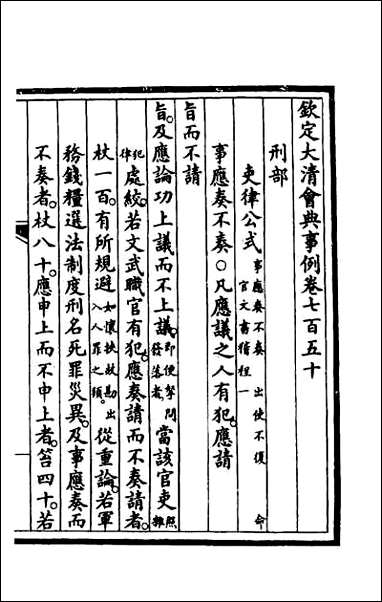 欽定大清會典事例卷七百五十
刑部
吏律公式事應奏不奏 出使不復命官文書稽程一
事應奏不奏○凡應議之人有犯。應請
旨而不請
旨。及應論功上議而不上議。即便拏問發落者。當該官吏照雜
犯律處絞。若文武職官有犯。應奏請而不奏請者。
杖一百。有所規避如懷挾故勘出入人罪之類。從重論。若軍
務錢糧選法制度刑名死罪災異。及事應奏而
不奏者。杖八十。應申上而不申上者。笞四十。若